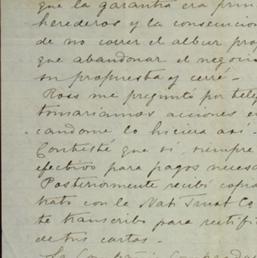 que la garantia era prin
herederos y la consecucion
de no correr el albur pro
que abandonar el negocio
su propuesta y cerré.
Ross me preguntó por tele
tomariamos acciones en
candome lo hiciera asi.
Contesté que sí siempre
efectivo para pagos neces
Posteriormente recibí copia
trato con le Nat. Trust Co
te transcribo para rectifi
de tus cartas.